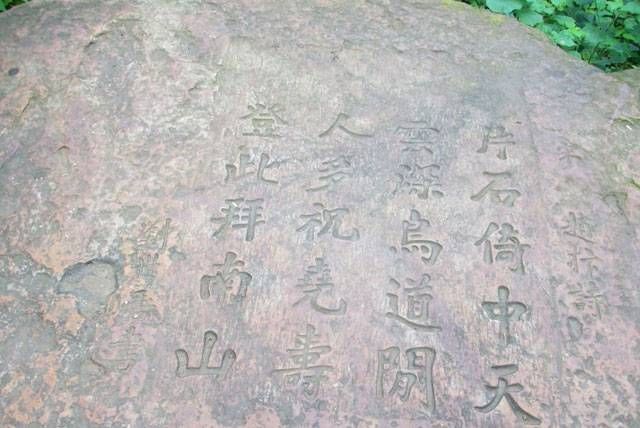 片石倚中天
雲深鳥道閒
人多祝堯壽
登此拜南山